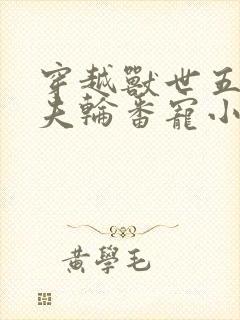 穿越獸世五
夫輪番寵小
黃學毛